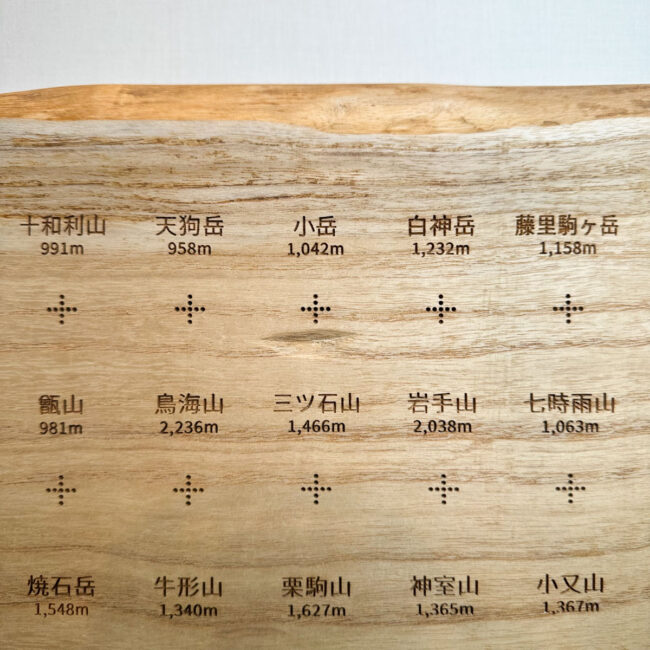 十和利山 天狗岳 小岳 白神岳 藤里駒ヶ岳
991m 958m 1,042m 1,232m 1,158m
甑山 鳥海山 三ツ石山 岩手山 七時雨山
981m 2,236m 1,466m 2,038m 1,063m
焼石岳 牛形山 栗駒山 神室山 小又山
1,548m 1,340m 1,627m 1,365m 1,367m